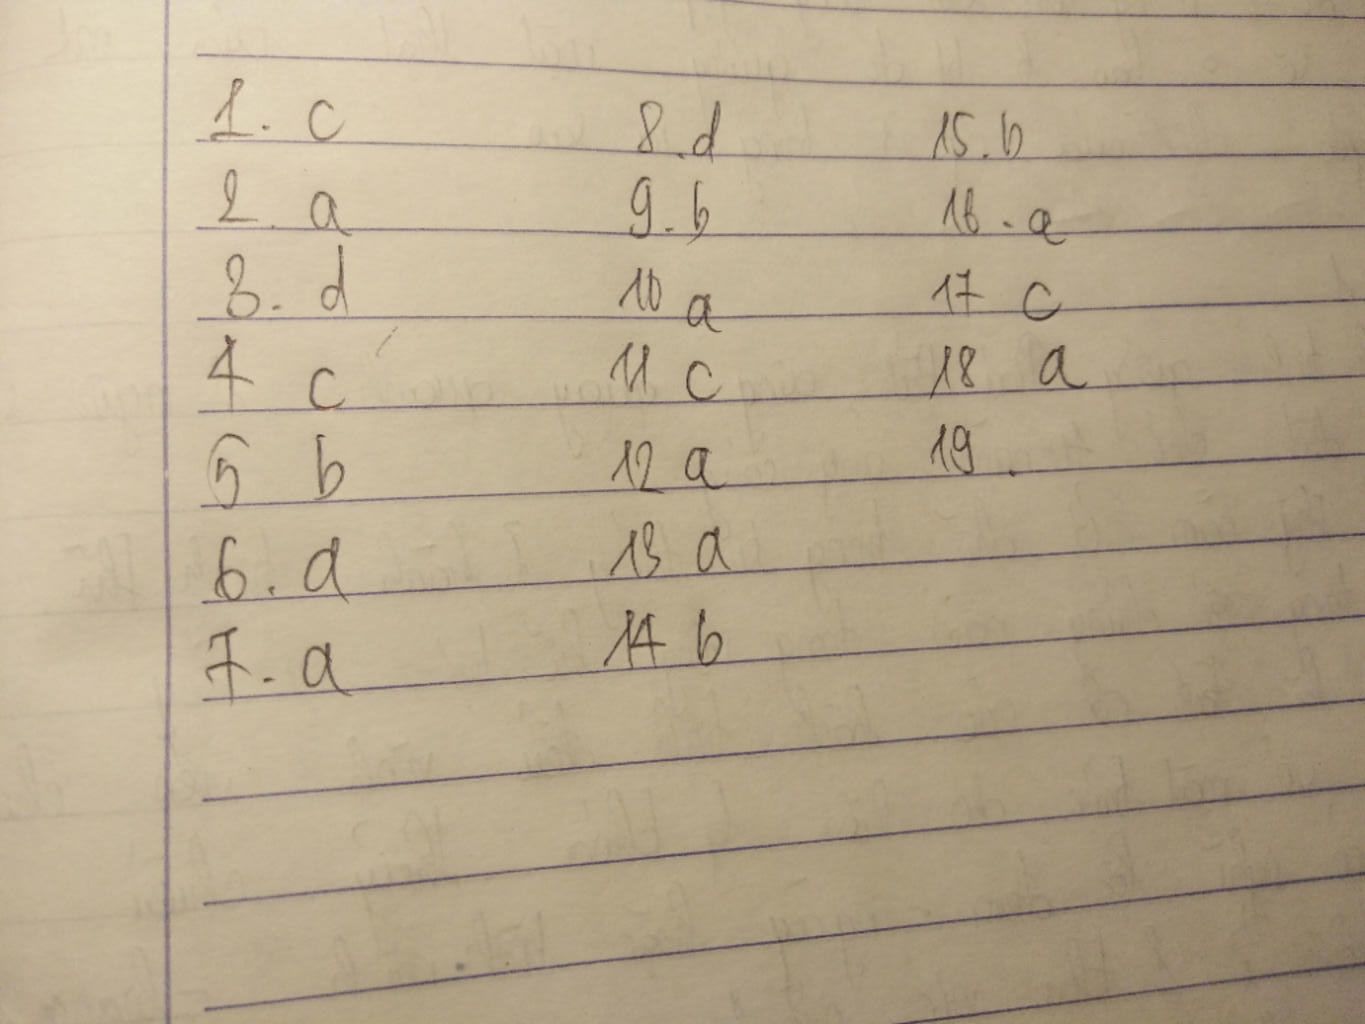 1. c
2. a
3. d
4 c
5 b
6. d
7. a
8. d
9. b
10 a
11 c
12 a
13 a
14 b
15. b
16. a
17 c
18 a
19.